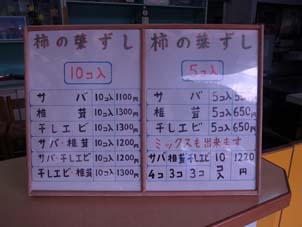 柿の葉ずし
10コ入
サバ 10コ入 1100円
椎茸 10コ入 1300円
干しエビ 10コ入 1300円
サバ・椎茸 10コ入 1200円
サバ・干しエビ 10コ入 1200円
干しエビ・椎茸 10コ入 1300円
柿の葉ずし
5コ入
サバ 5コ入
椎茸 5コ入 650円
干しエビ 5コ入 650円
ミックスも出来ます
サバ 椎茸 干しエビ 10コ入 1220円
4コ 3コ 3コ